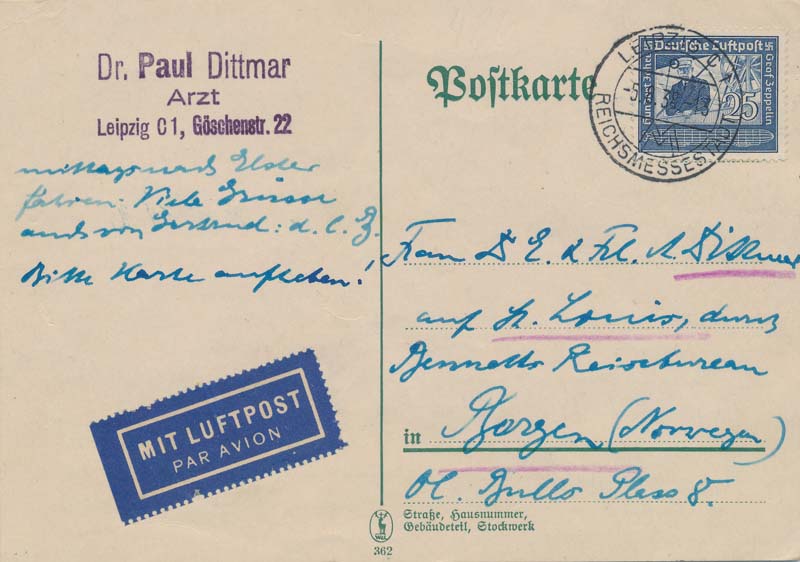 Dr. Paul Dittmar
Arzt
Leipzig C 1, Göschenstr. 22
mittags nach Elster
fahren. Viele Grüsse
auch von Gertrud: d. l. P.
Bitte Karte aufheben!
MIT LUFTPOST
PAR AVION
Postkarte
LEIPZIG C
REICHSMESSESTADT
Deutsche Luftpost
Graf Zeppelin
25
Frau Dr E. & Frl. A Dittmar
auf St. Louis, durch
Bennetts Reisebureau
in Bergen (Norwegen)
Ol. Bulls Plass 8.
Straße, Hausnummer,
Gebäudeteil, Stockwerk
362